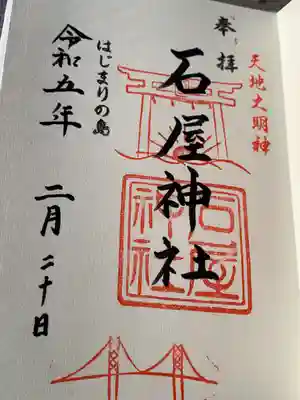 奉拝
天地大明神
石屋神社
石屋
神社
はじまりの島
令和五年
二月二十日